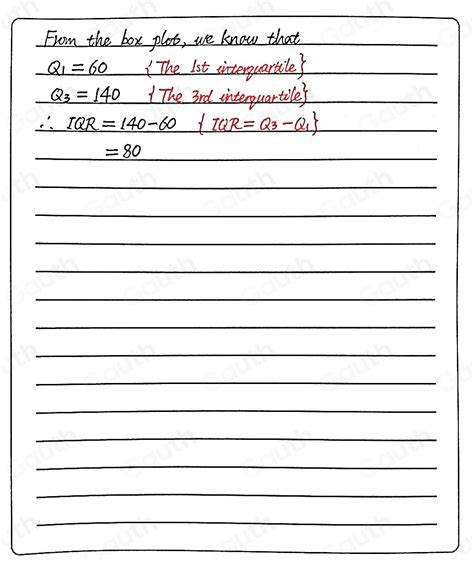 From the box plot, we know that
Q1 = 60 {The 1st interquartile}
Q3 = 140 {The 3rd interquartile}
∴ IQR = 140-60 {IQR = Q3 - Q1}
= 80
Gauth